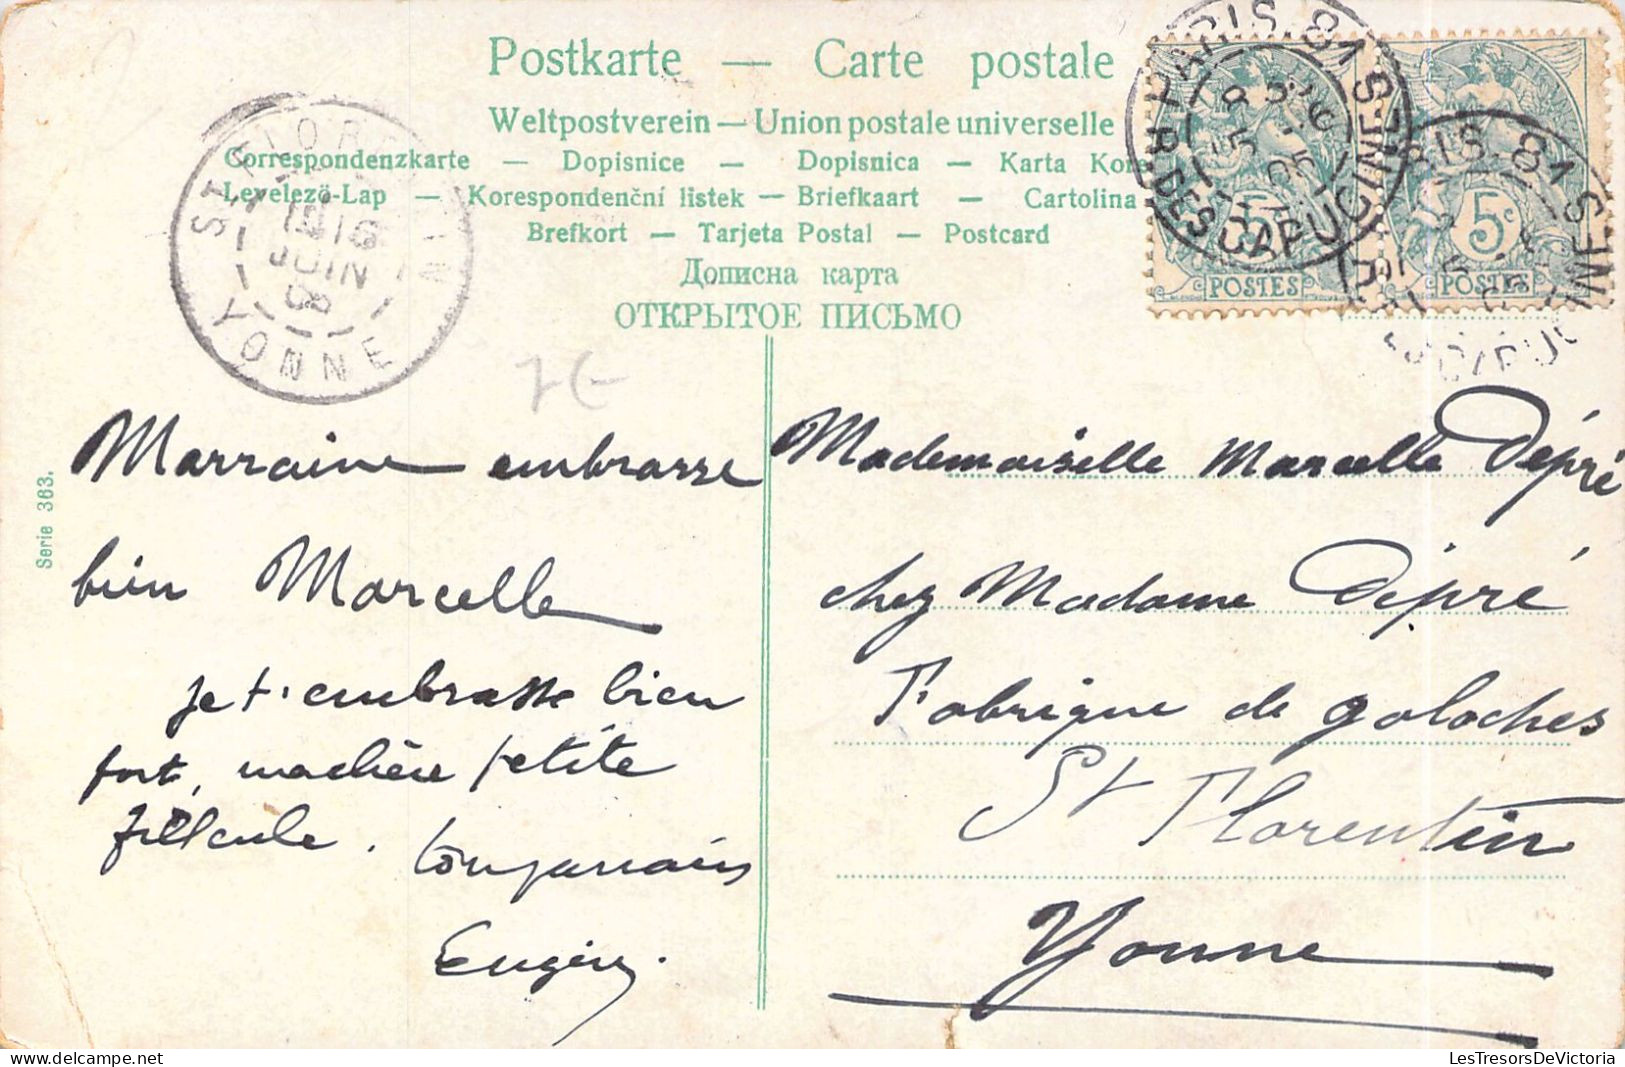 Postkarte — Carte postale
Weltpostverein — Union postale universelle
Correspondenzkarte — Dopisnice — Dopisnica — Karta Kore
Levelező-Lap — Korespondenční listek — Briefkaart — Cartolina
Brefkort — Tarjeta Postal — Postcard
Дописна карта
ОТКРЫТОЕ ПИСЬМО
PARIS 81
R. DES CAPUCINES
5c
POSTES
5c
POSTES
YONNE
JUIN
7€
Serie 363.
Marraine embrasse
bien Marcelle
je t'embrasse bien
fort, ma chère petite
filleule.
Ton parrain
Eugène.
Mademoiselle Marcelle Dépré
chez Madame Dépré
Fabrique de galoches
St Florentin
Yonne
LesTresorsDeVictoria